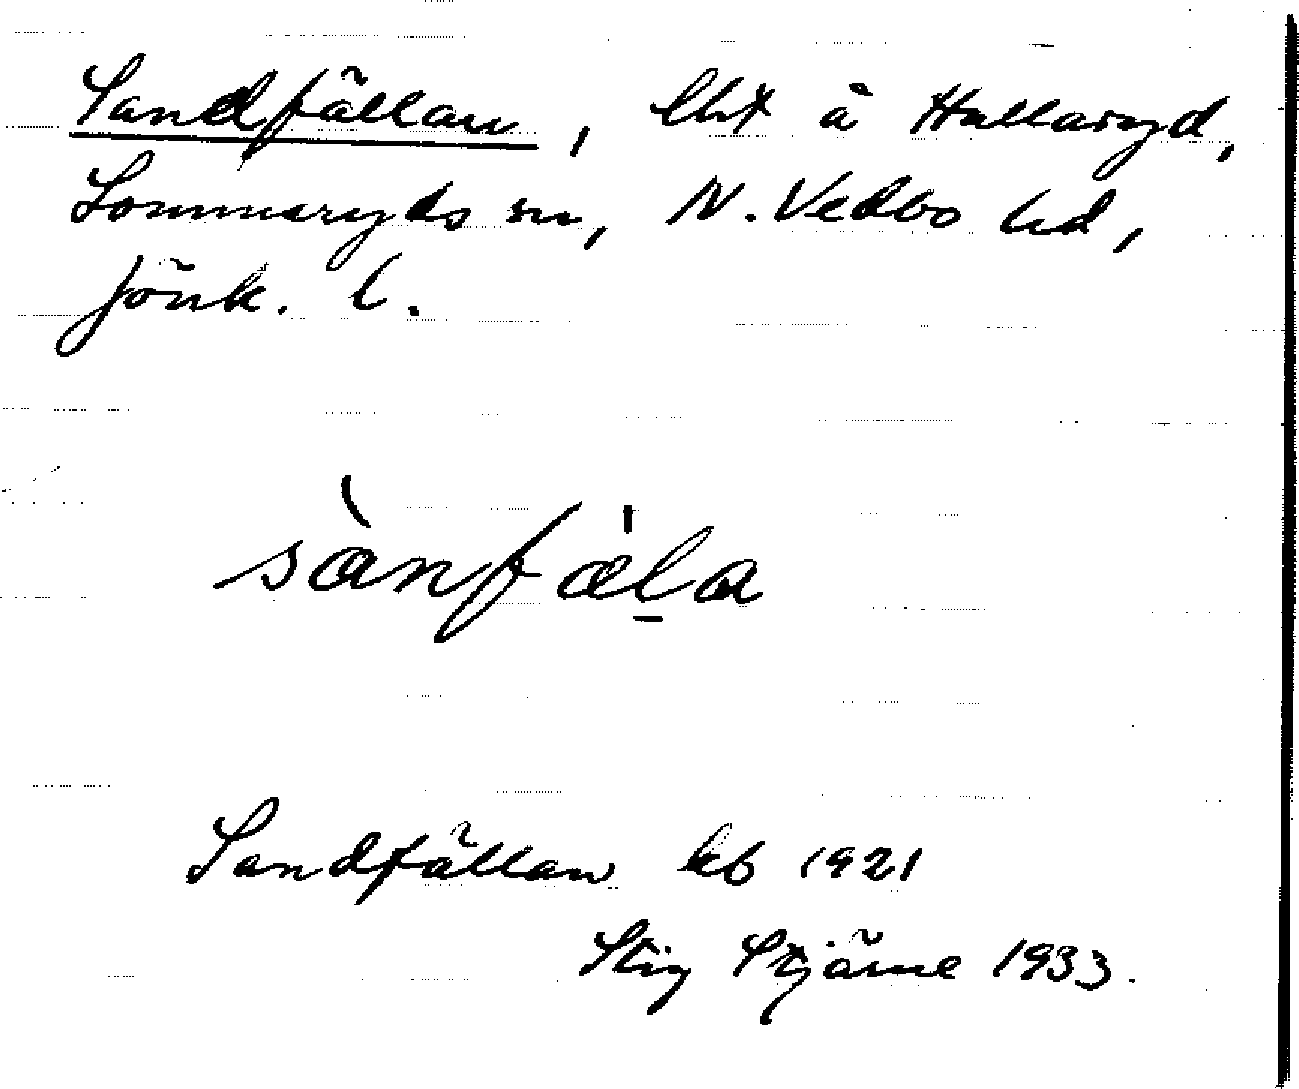 Sandfällan, lht å Hullaryd,
Lommaryds sn, N. Vedbo hd,
Jönk. l.
sànfæ̍l̠a
Sandfällan kb 1921
Stig Stjärne 1933.